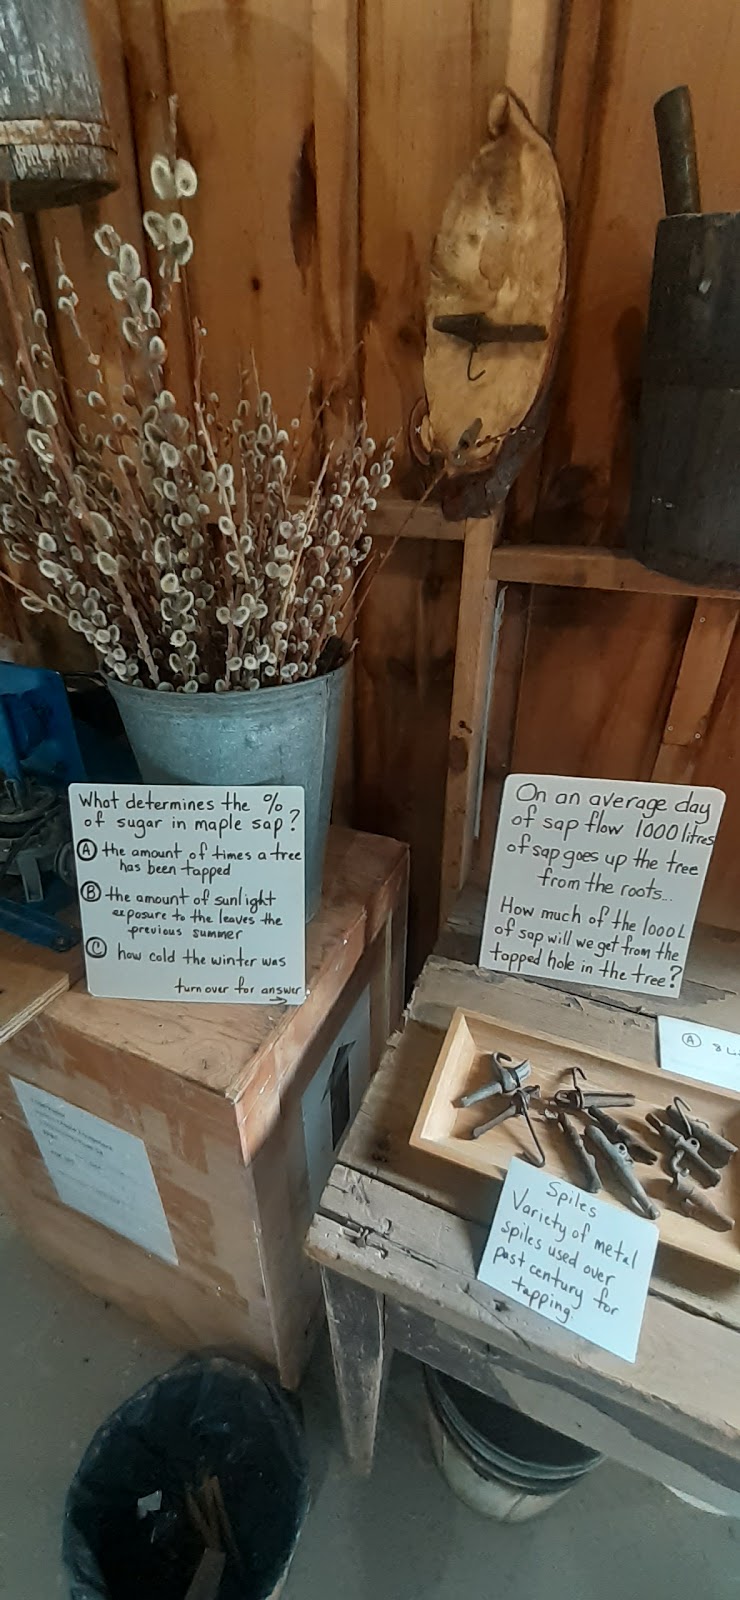 What determines the %
of sugar in maple sap?
Ⓐ the amount of times a tree
has been tapped
Ⓑ the amount of sunlight
exposure to the leaves the
previous summer
Ⓒ how cold the winter was
turn over for answer
→
On an average day
of sap flow 1000 litres
of sap goes up the tree
from the roots...
How much of the 1000 L
of sap will we get from the
tapped hole in the tree?
Ⓐ 8 L
Spiles
Variety of metal
spiles used over
past century for
tapping.